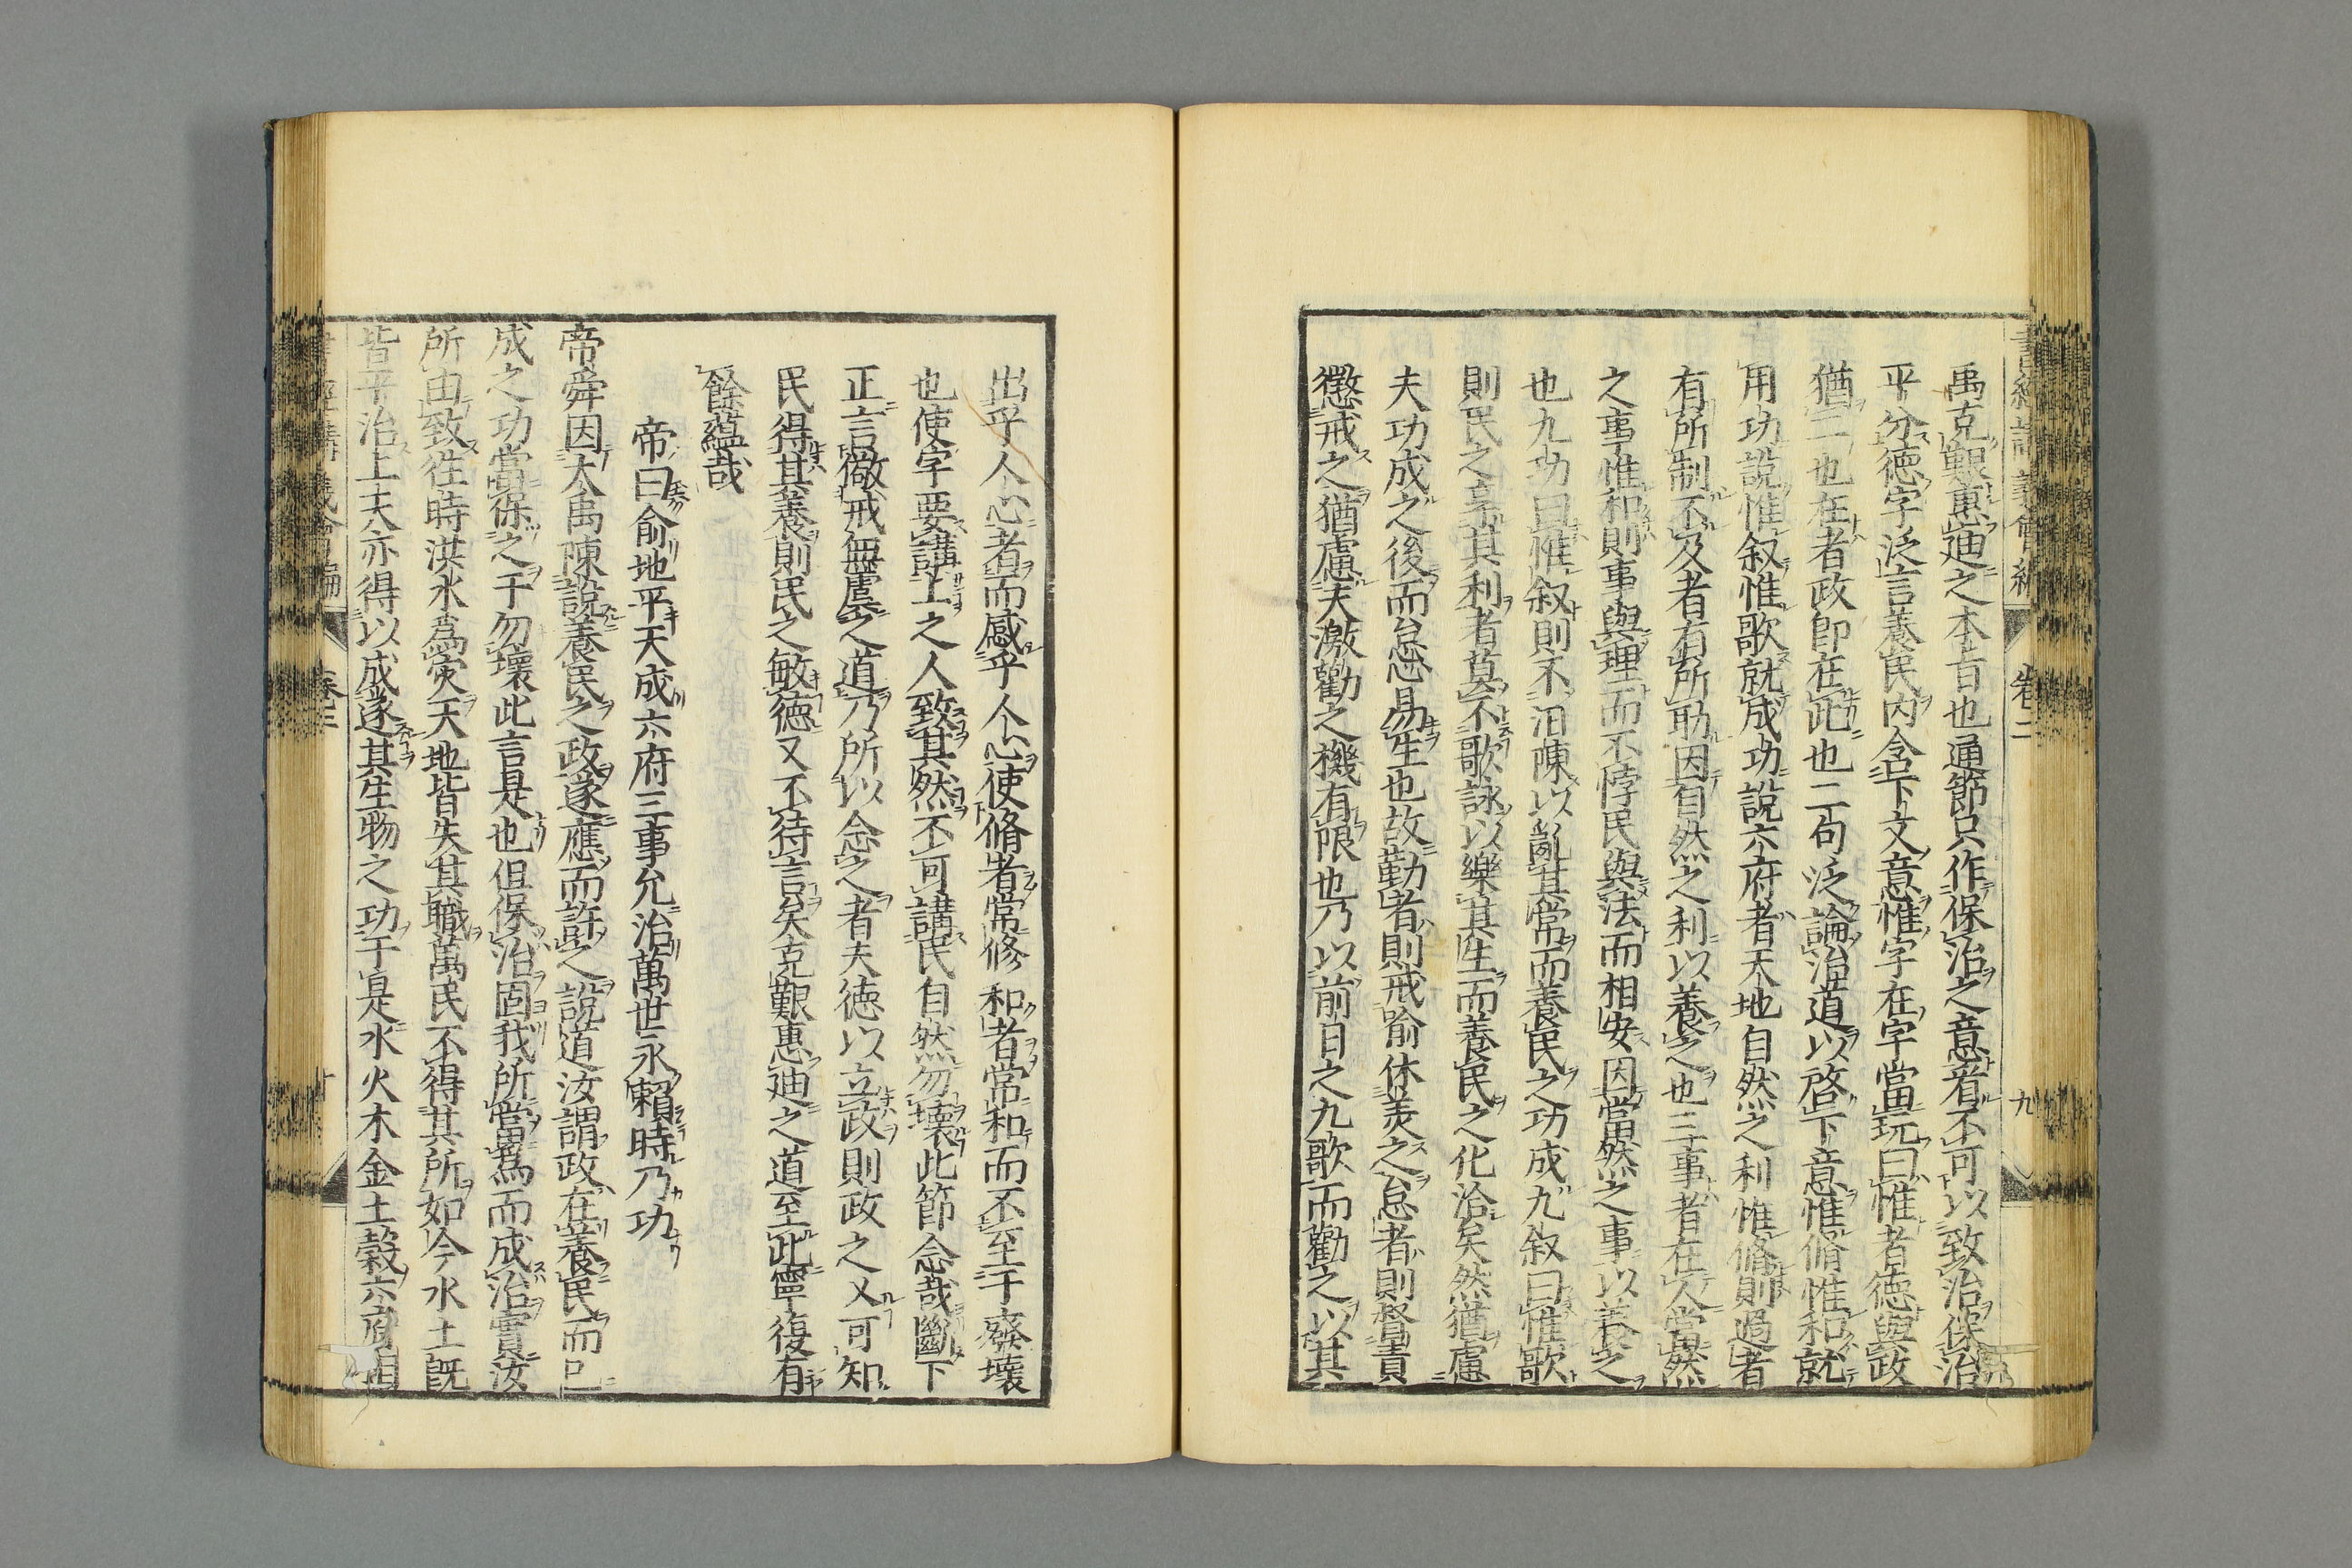 禹克艱惠迪之本旨也通節只作保治之意看不可以致治保治
平分徳字泛言養民内含下文意惟字在字當玩曰惟者徳與政
猶二也在者政即在此也二句泛論治道以啓下意惟脩惟和就
用功説惟叙惟歌就成功説六府者天地自然之利惟脩則過者
有所制不及者有所助因自然之利以養之也三事者在人當然
之事惟和則事與理而不悖民與法而相安因當然之事以養之
也九功曰惟叙則不汨陳以亂其常而養民之功成九叙曰惟歌
則民之享其利者莫不歌詠以樂其生而養民之化洽矣然猶慮
夫功成之後而怠忽易生也故勤者則戒喩休美之怠者則督責
懲戒之猶慮夫激勸之機有限也乃以前日之九歌而勸之以其
書經講義會編 卷二 九
出乎人心者而感乎人心使脩者常修和者常和而不至于廢壞
也使字要講上之人致其然不可講民自然勿壞此節念哉斷下
正言儆戒無虞之道乃所以念之者夫徳以立政則政之乂可知
民得其養則民之敏徳又不待言矣克艱惠迪之道至此寧復有
餘蘊哉
帝曰俞地平天成六府三事允治萬世永賴時乃功
帝舜因大禹陳説養民之政遂應而許之説道汝謂政在養民而已
成之功當保之于勿壞此言是也但保治固我所當爲而成治實汝
所由致往時洪水爲灾天地皆失其職萬民不得其所如今水土既
皆平治上天亦得以成遂其生物之功于是水火木金土穀六府相